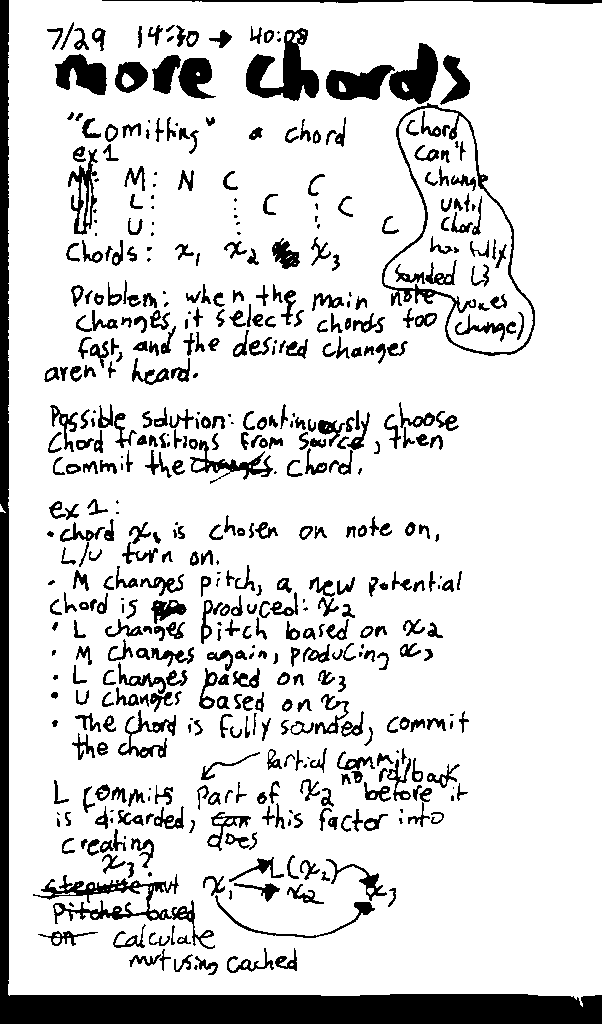 7/29 14:30 → 40:08
more chords
"Comitting" a chord
ex 1
M: N C C
L: C C
U: C
Chords: x1 x2 x3
Chord
can't
change
until
chord
has fully
sounded (3
voxes
change)
Problem: when the main note
changes, it selects chords too
fast, and the desired changes
aren't heard.
Possible solution: Continuously choose
Chord transitions from source, then
Commit the changes. Chord.
ex 1:
• chord x1 is chosen on note on,
L/U turn on.
• M changes pitch, a new potential
chord is produced: x2
• L changes pitch based on x2
• M changes again, producing x3
• L changes based on x3
• U changes based on x3
• The chord is fully sounded, commit
the chord
Partial commit,
no rollback
L commits part of x2 before it
is discarded, can this factor into
does
creating
x3?
stepwise mvt
Pitches based
on calculate
mvt using cached
x1 L(x2) x2 x3